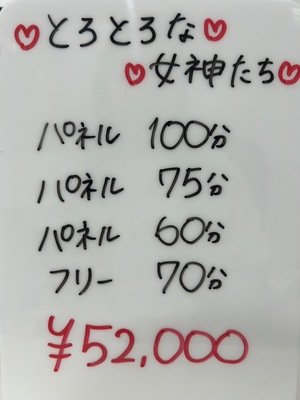 ♡とろとろな♡
♡女神たち♡
パネル 100分
パネル 75分
パネル 60分
フリー 70分
¥52,000